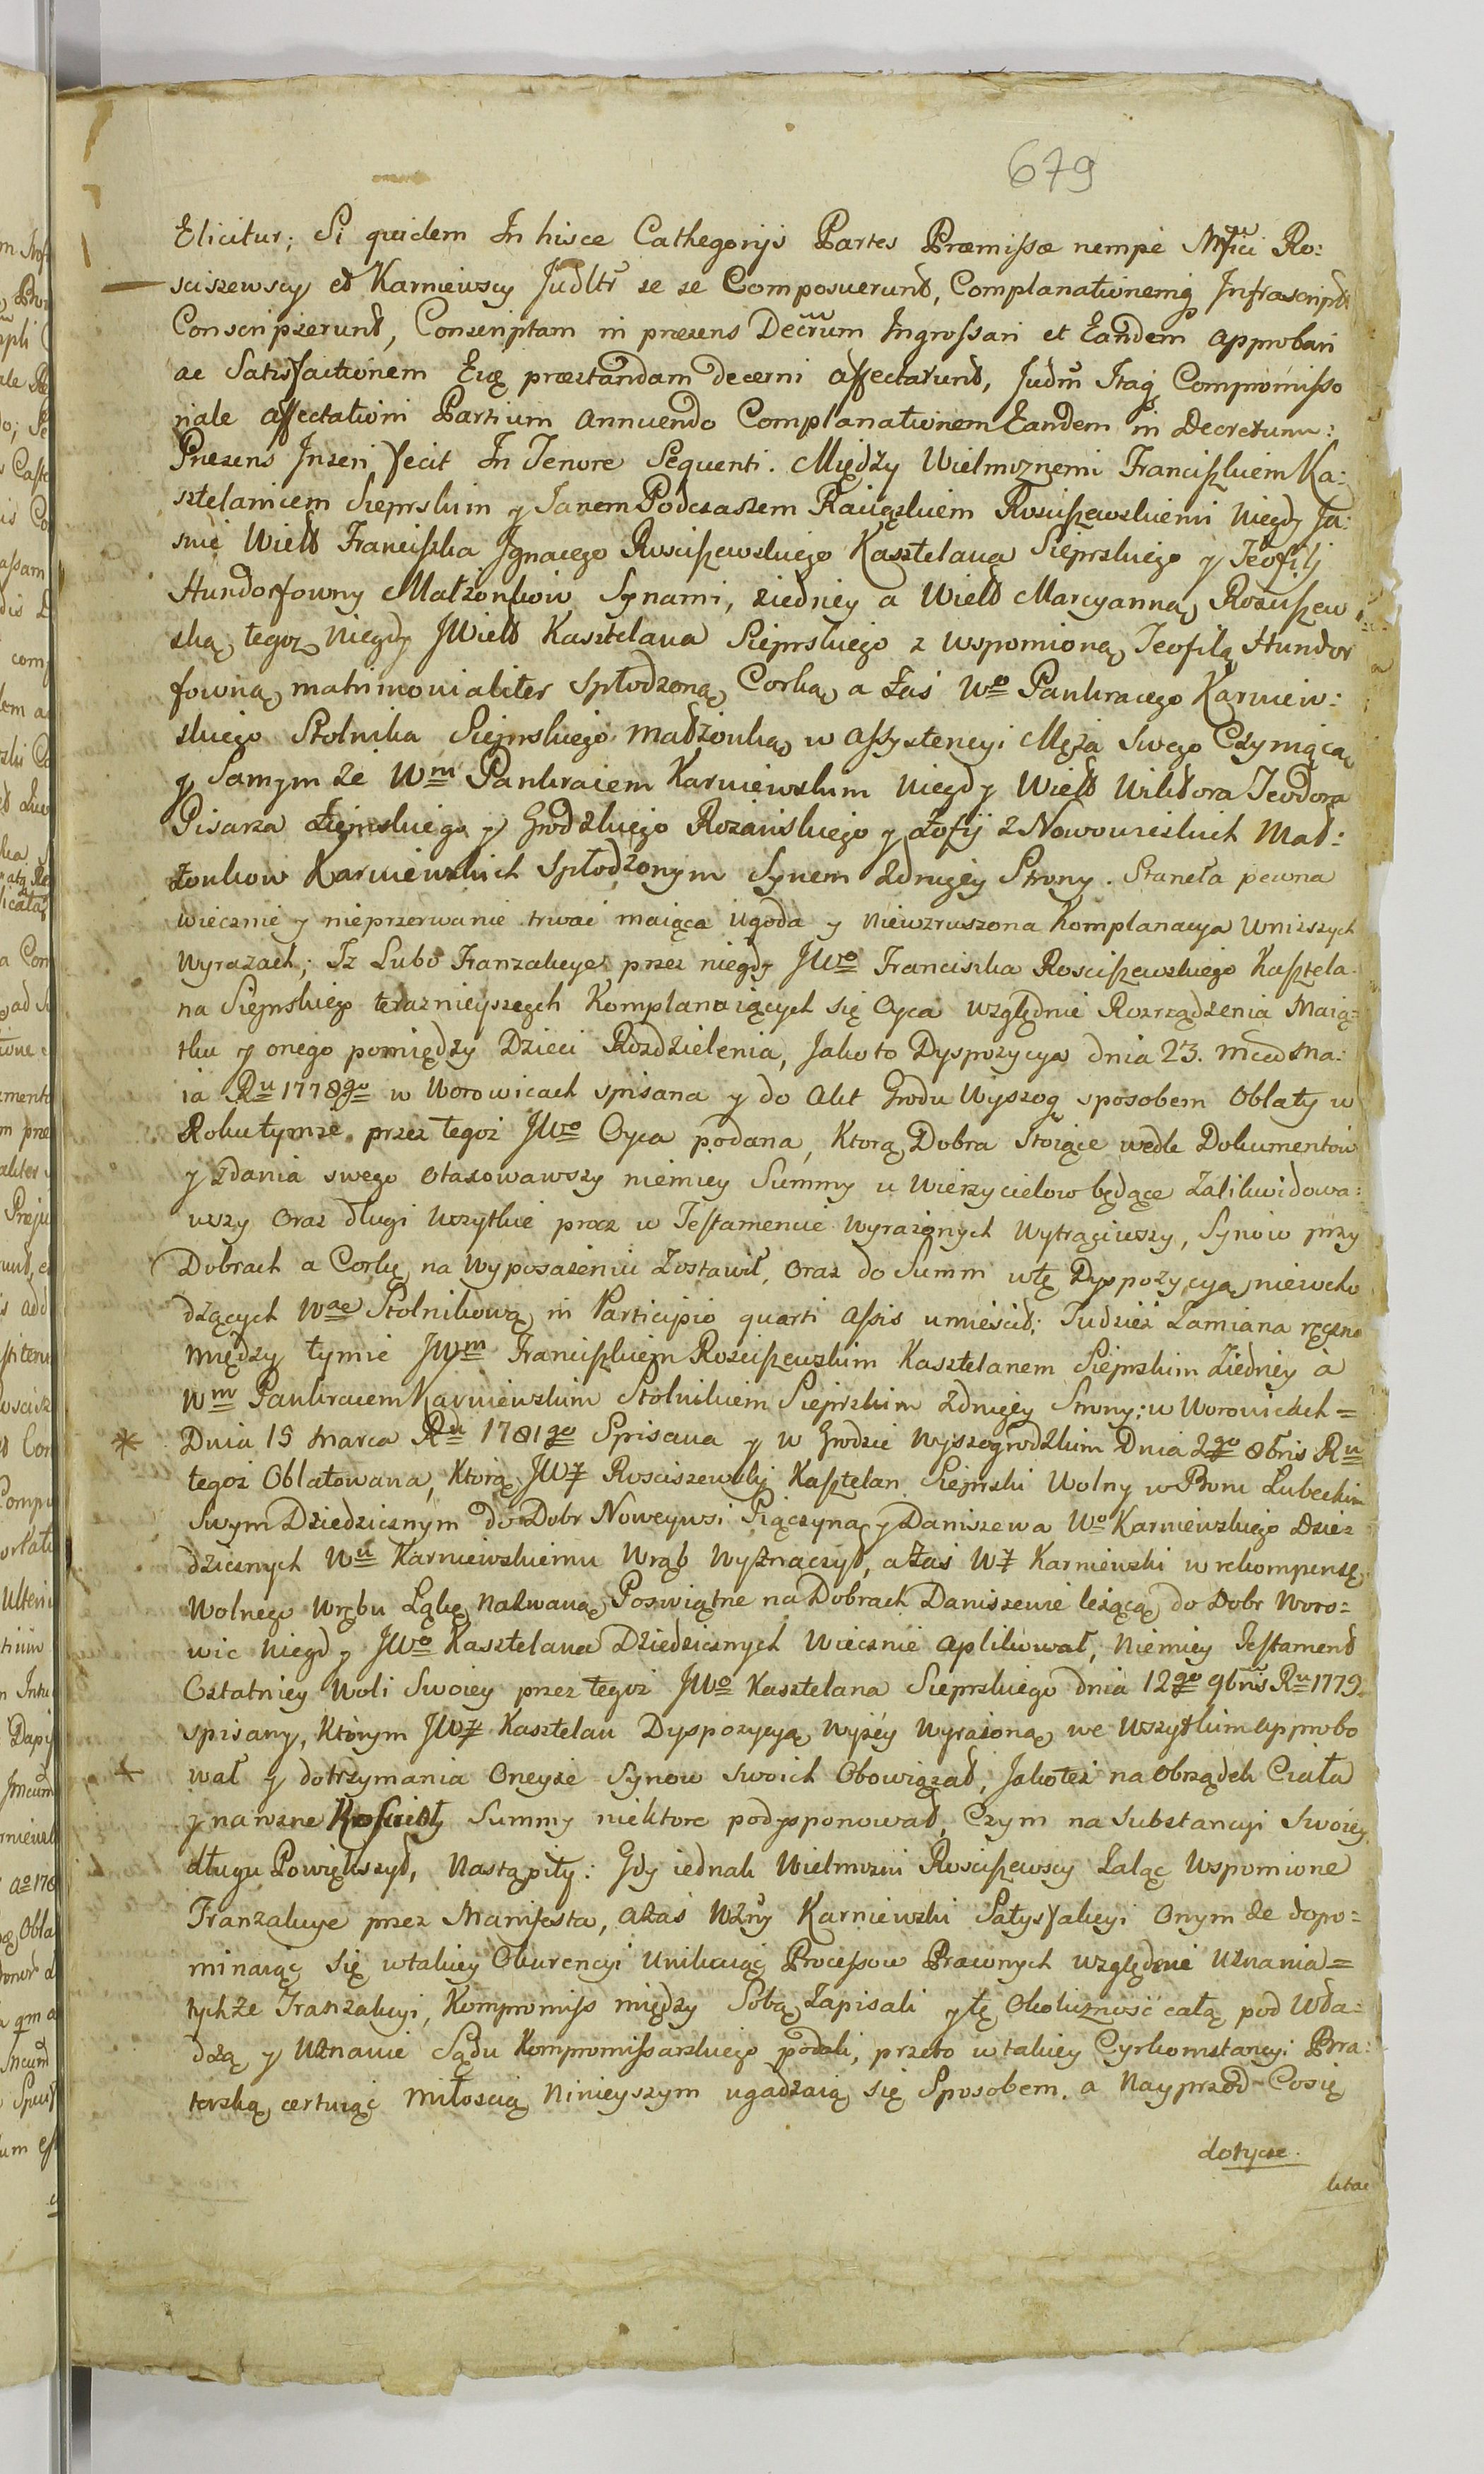 679
Elicitur; Si quidem In hisce Cathegorijs Partes Præmissæ nempè Mfici Ro:
sciszewscy et Karniewscy Judltr se se Composuerunt, Complanationemq Infrascript
Conscripserunt, Conscriptam in præsens Decrum Ingrossari et Eandem approbari
ac Satisfactionem Eiq præstandam decerni affectarunt, Judm Itaq Compromisso
riale affectationi Partium annuendo Complanationem Eandem in Decretum:
Præsens Inseri fecit In Tenore Sequenti. Między Wielmoznemi Franciszkiem Ka:
sztelanicem Sieprskim y Janem Podczaszem Raiązkiem Rosciszewskiemi niegdy Ja:
snie Wielt Franciszka Jgnacego Rosciszewskiego Kasztelana Sieprskiego y Teofilj
Hundorfowny Małzonkow Synami, ziedney a Wielt Marcyanną Rosciszew
ską tegoz niegdy JWielt Kasztelana Sieprskiego z wspomioną Teofilą Hundor
fowną matrimonialiter spłodzoną Corką a Zaś Wo Pankracego Karniew:
skiego Stolnika Sieprskiego małżonką w assystencyi Męża swego Czyniącą
y Samym ze Wm Pankraiem Karniewskim niegdy Wielt Wiktora Teodora
Pisarza Ziemskiego y Grodzkiego Rożańskiego y Zofij z Nowowieiskich Mał:
żonkow Karniewskich spłodzonym Synem zdrugiey Strony. Staneła pewna
wiecznie y nieprzerwanie trwać maiąca ugoda y niewzruszona Komplanacya wniższych
wyrazach; Iz Lubo Tranzakcye przez niegdy JWo Franciszka Rosciszewskiego Kasztela
na Sieprskiego teraznieyszech Komplanaiących się Oyca względnie Rozrządzenia Maią:
tku y onego pomiędzy Dzieci Rozdzielenia, Jako to Dyspozycya dnia 23. mca Ma:
ia Ru 1778go w Worowicach spisana y do Akt Grodu Wyszog sposobem Oblaty w
Roku tymze przez tegoz JWo Oyca podana, Ktorą Dobra Stoiące wedle Dokumentow
y zdania swego otaxowawszy niemiey Summy u Wierzycielow będące Zalikwidowa:
wszy oraz długi wszytkie procz w Testamencie wyrażonych wytrąciwszy, Synow przy
Dobrach a Corkę na wyposażeniu Zostawił, oraz do Summ wtę Dyspozycyą niewcho
dzących Wae Stolnikową in Participio quarti assis umieścił; Tudzież Zamiana ręczna
między tymże JWm Franciszkiem Rosciszewskim Kasztelanem Sieprskim ziedney à
Wm Pankraiem Karniewskim Stolnikiem Sieprskim zdrugiey Strony; w Worowicach =
* Dnia 15 Marca Ru 1781go Spisana y w Grodzie Wyszogrodzkim Dnia 2go 8bris Ru
tegoż Oblatowana, Ktorą JWJ Rosciszewskj Kasztelan Sieprski Wolny w Boru Lubeckim
Swym Dziedzicznym do Dobr Noweywsi Piączyną y Daniszewa Wo Karniewskiego Dzie:
dzicznych Wu Karniewskiemu Wrąb Wyznaczył, a Zaś WJ Karniewski w rekompensę
Wolnego Wrębu Łąkę nazwaną Poswiątne na Dobrach Daniszewie leżącą do Dobr Woro=
wic niegdy JWo Kasztelana Dziedzicznych wiecznie aplikował, niemiey Testament
Ostatniey Woli Swoiey przez tegoz JWo Kasztelana Sieprskiego dnia 12go 9bris Ru 1779
spisany, Ktorym JWJ Kasztelan Dyspozycyą wyżey wyrażoną we wszytkim approbo
* wał y dotrzymania oneyże Synow Swoich Obowiązał, Jakoteż na obrządek Ciała
y na wzne Kościoły Summy niektore podysponował, Czym na Substancyi swoiey
długu Powiększył, nastąpiły: Gdy iednak Wielmozni Rosciszewscy Zaląc wspomione
Tranzakcye przez Manifesta, a zaś Wżny Karniewski Satysfakcyi onym że dopo=
minaiąc się wtakiey Okurencyi Unikaiąc Processow Prawnych względnie Uznania=
tychże Tranzakcyi, Kompromiss między Sobą Zapisali y tę okoliczność całą pod Wła=
dzą y Uznanie Sądu Kompromissarskiego podali, przeto w takiey Cyrkomstancyi Bra:
terską certuiąc Miłością Ninieyszym ugadzaią się Sposobem. a Nayprzod Cosię
dotycze.